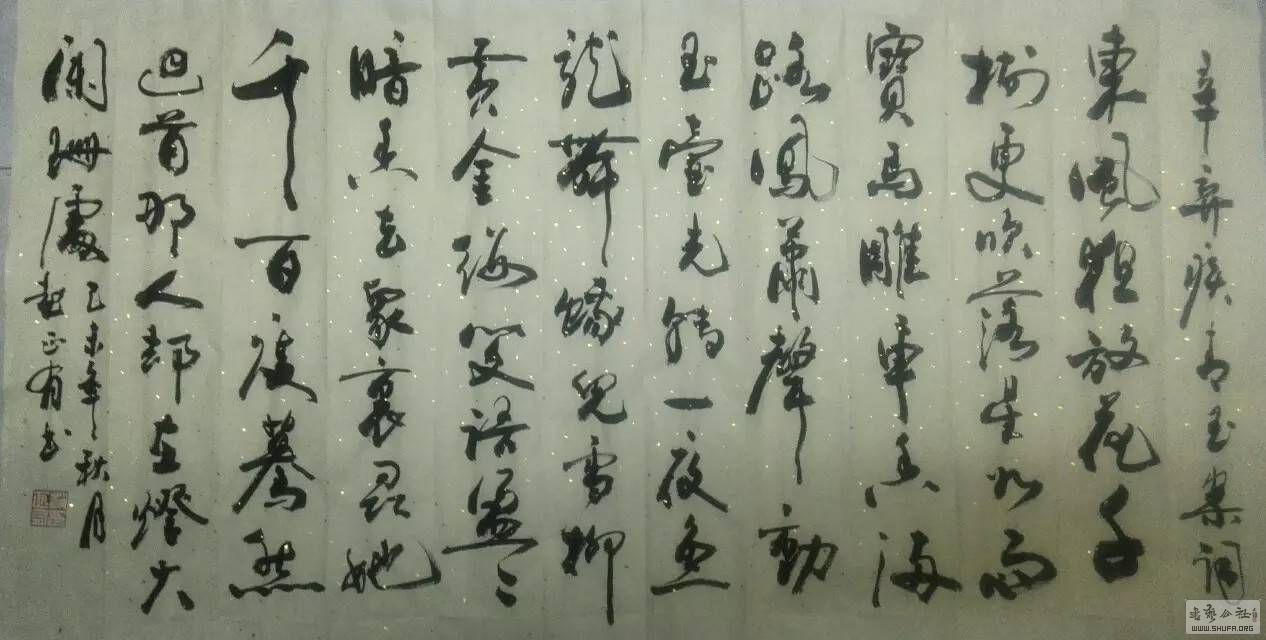 辛弃疾青玉案詞
東風放花千
樹更吹落星如雨
寶馬雕車香滿
路鳳蕭聲動
玉壺光轉一夜魚
龍舞蛾兒雪柳
黃金缕笑語盈〻
暗香去眾裏尋她
千百度驀然
迴首那人却在燈火
闌珊處
乙未年秋月
正有书
書藝公社
WWW.SHUFA.ORG